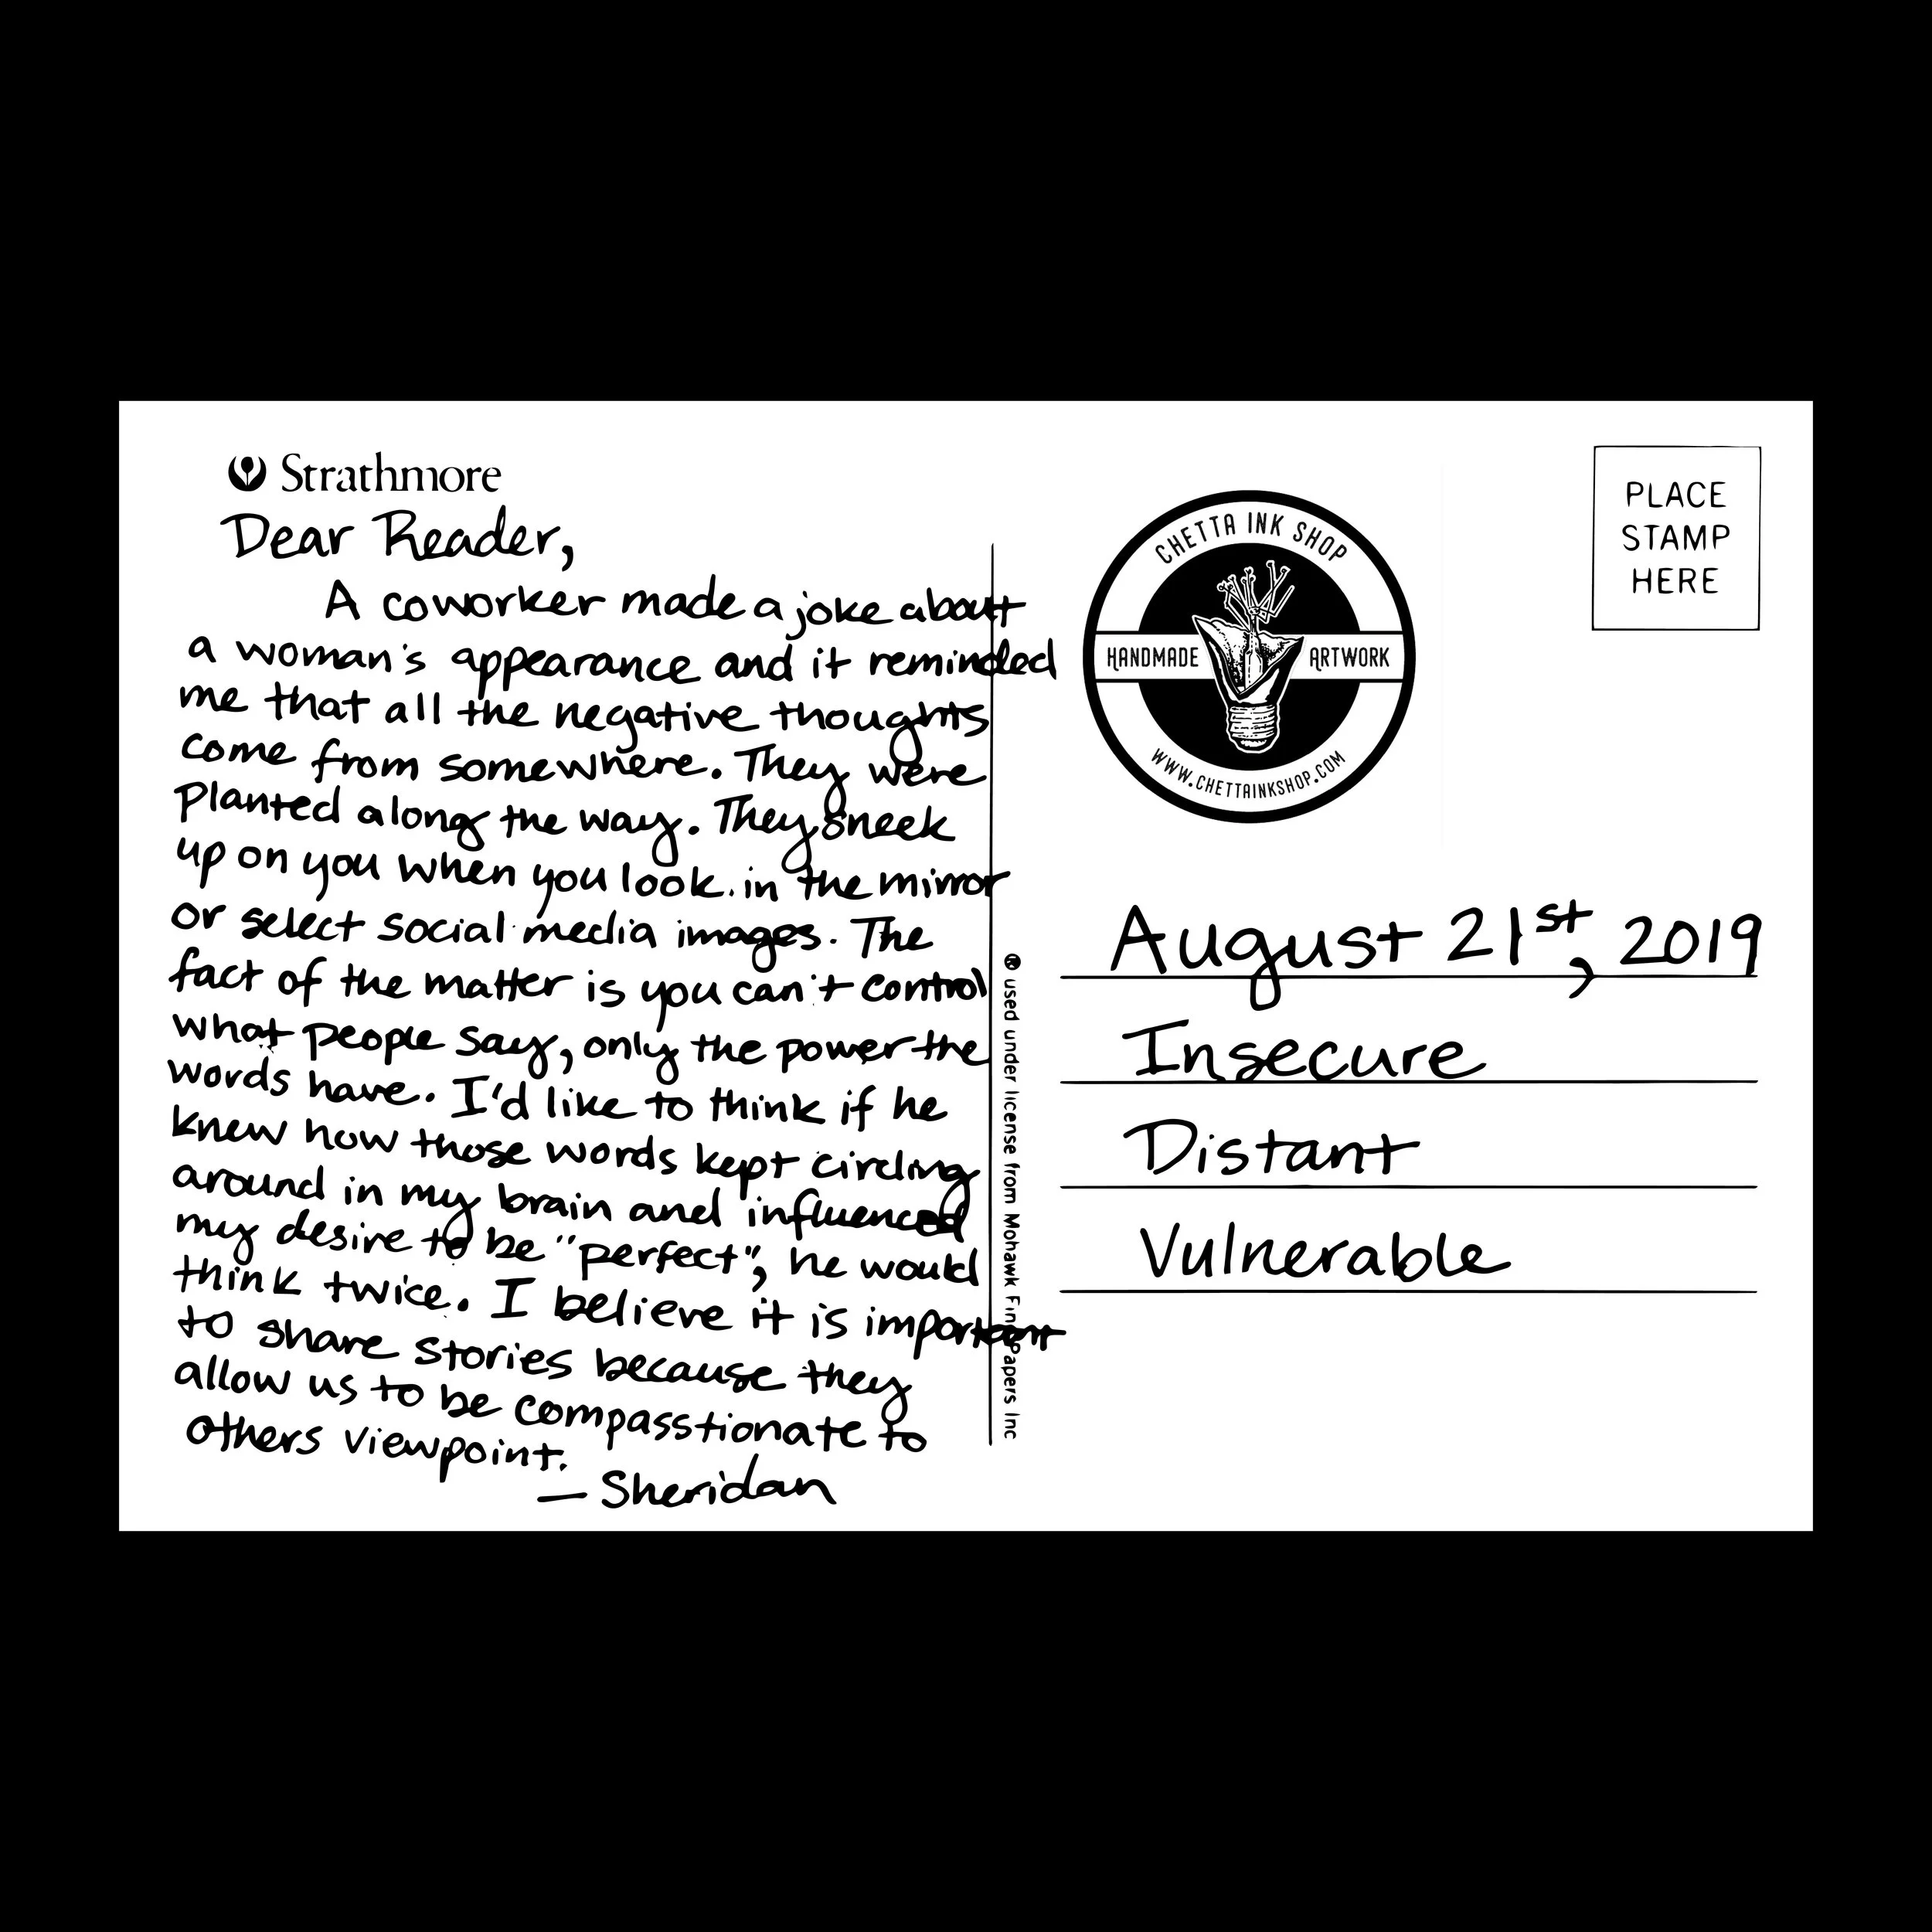 Strathmore
Dear Reader,
A coworker made a joke about
a woman's appearance and it reminded
me that all the negative thoughts
come from somewhere. They were
Planted along the way. They sneek
up on you when you look in the mirror
or select social media images. The
fact of the matter is you can't control
what people say, only the power the
words have. I'd like to think if he
knew how those words kept circling
around in my brain and influenced
my desire to be "perfect", he would
think twice. I believe it is important
to share stories because they
allow us to be compasstionate to
others viewpoint.
— Sheridan
® used under license from Mohawk Fine Papers Inc
CHETTA INK SHOP
HANDMADE ARTWORK
WWW.CHETTAINKSHOP.COM
PLACE
STAMP
HERE
August 21st, 2019
Insecure
Distant
Vulnerable